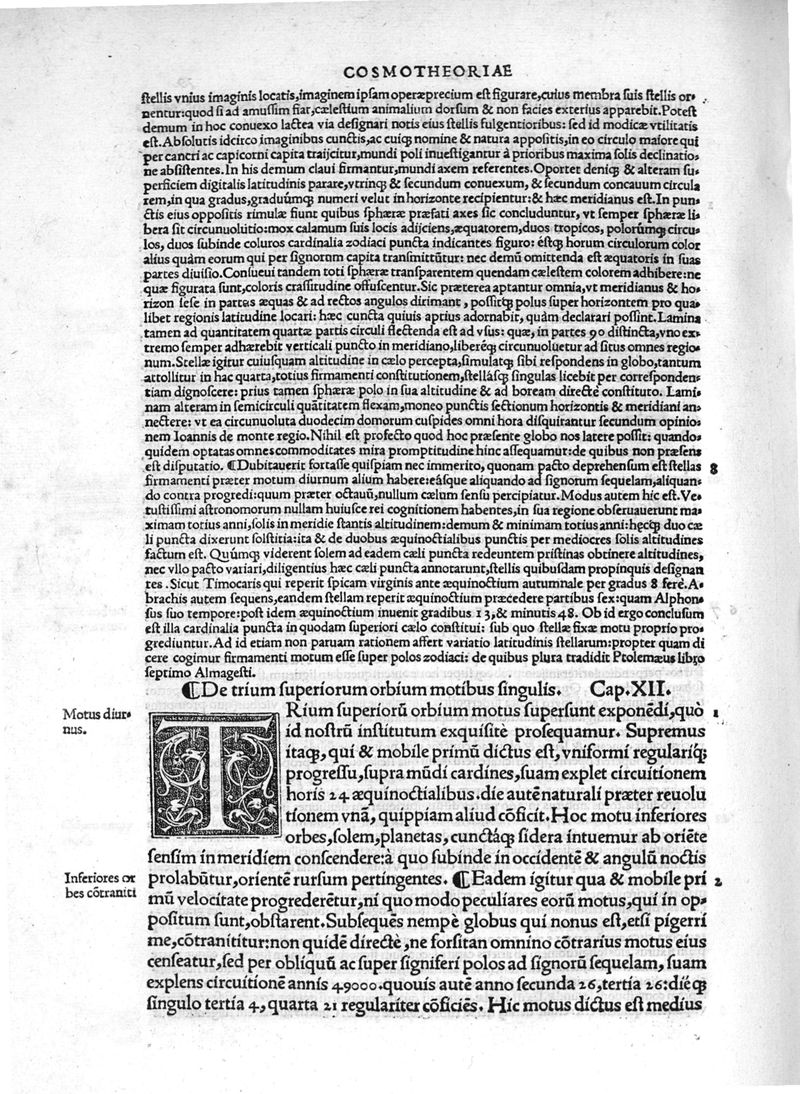 COSMOTHEORIAE
ſtellis vnius imaginis locatis, imaginem ipſam operæprecium eſt figurare, cuius membra ſuis ſtellis or-
nentur: quod ſi ad amuſſim fiat, cæleſtium animalium dorſum & non facies exterius apparebit. Poteſt
demum in hoc conuexo lactea via deſignari notis eius ſtellis fulgentioribus: ſed id modicæ vtilitatis
eſt. Abſolutis idcirco imaginibus cunctis, ac cuiq; nomine & natura appoſitis, in eo circulo maiore qui
per cancri ac capicorni capita traijcitur, mundi poli inueſtigantur à prioribus maxima ſolis declinatio-
ne abſiſtentes. In his demum claui firmantur, mundi axem referentes. Oportet deniq; & alteram ſu-
perficiem digitalis latitudinis parare, vtrinq; & ſecundum conuexum, & ſecundum concauum circula
rem, in qua gradus, graduúmq; numeri velut in horizonte recipientur: & hæc meridianus eſt. In pun-
ctis eius oppoſitis rimulæ fiunt quibus ſphæræ præfati axes ſic concluduntur, vt ſemper ſphæræ li-
bera ſit circunuolutio: mox calamum ſuis locis adijciens, æquatorem, duos tropicos, polorúmq; circu-
los, duos ſubinde coluros cardinalia zodiaci puncta indicantes figuro: éſtq; horum circulorum color
alius quàm eorum qui per ſignorum capita tranſmittūtur: nec demū omittenda eſt æquatoris in ſuas
partes diuiſio. Conſueui tandem toti ſphæræ tranſparentem quendam cæleſtem colorem adhibere: ne
quæ figurata ſunt, coloris craſſitudine offuſcentur. Sic præterea aptantur omnia, vt meridianus & ho-
rizon ſeſe in partes æquas & ad rectos angulos dirimant, poſſitq; polus ſuper horizontem pro qua-
libet regionis latitudine locari: hæc cuncta quiuis aptius adornabit, quàm declarari poſſint. Lamina
tamen ad quantitatem quartæ partis circuli flectenda eſt ad vſus: quæ, in partes 90 diſtincta, vno ex-
tremo ſemper adhærebit verticali puncto in meridiano, liberéq; circunuoluetur ad ſitus omnes regio-
num. Stellæ igitur cuiuſquam altitudine in cælo percepta, ſimulatq; ſibi reſpondens in globo, tantum
attollitur in hac quarta, totius firmamenti conſtitutionem, ſtelláſq; ſingulas licebit per correſponden-
tiam dignoſcere: prius tamen ſphæræ polo in ſua altitudine & ad boream directè conſtituto. Lami-
nam alteram in ſemicirculi quātitatem flexam, moneo punctis ſectionum horizontis & meridiani an-
nectere: vt ea circunuoluta duodecim domorum cuſpides omni hora diſquirantur ſecundum opinio-
nem Ioannis de monte regio. Nihil eſt profecto quod hoc præſente globo nos latere poſſit: quando-
quidem optatas omnes commoditates mira promptitudine hinc aſſequamur: de quibus non præſens
eſt diſputatio. ¶ Dubitauerit fortaſſe quiſpiam nec immerito, quonam pacto deprehenſum eſt ſtellas 8
firmamenti præter motum diurnum alium habere: eáſque aliquando ad ſignorum ſequelam, aliquan-
do contra progredi: quum præter octauū, nullum cælum ſenſu percipiatur. Modus autem hic eſt. Ve-
tuſtiſſimi aſtronomorum nullam huiuſce rei cognitionem habentes, in ſua regione obſeruauerunt ma-
ximam totius anni, ſolis in meridie ſtantis altitudinem: demum & minimam totius anni: hęcq; duo cæ
li puncta dixerunt ſolſtitia: ita & de duobus æquinoctialibus punctis per mediocres ſolis altitudines
factum eſt. Quúmq; viderent ſolem ad eadem cæli puncta redeuntem priſtinas obtinere altitudines,
nec vllo pacto variari, diligentius hæc cæli puncta annotarunt, ſtellis quibuſdam propinquis deſignan
tes. Sicut Timocaris qui reperit ſpicam virginis ante æquinoctium autumnale per gradus 8 ferè. A-
brachis autem ſequens, eandem ſtellam reperit æquinoctium præcedere partibus ſex: quam Alphon-
ſus ſuo tempore: poſt idem æquinoctium inuenit gradibus 13, & minutis 48. Ob id ergo concluſum
eſt illa cardinalia puncta in quodam ſuperiori cælo conſtitui: ſub quo ſtellæ fixæ motu proprio pro-
grediuntur. Ad id etiam non paruam rationem affert variatio latitudinis ſtellarum: propter quam di
cere cogimur firmamenti motum eſſe ſuper polos zodiaci: de quibus plura tradidit Ptolemæus libro
ſeptimo Almageſti.
¶ De trium ſuperiorum orbium motibus ſingulis. Cap. XII.
Motus diur-
nus.
TRium ſuperiorū orbium motus ſuperſunt exponēdi, quò 1
id noſtrū inſtitutum exquiſitè proſequamur. Supremus
itaq;, qui & mobile primū dictus eſt, vniformi regulariq;
progreſſu, ſupra mūdi cardines, ſuam explet circuitionem
horis 24 æquinoctialibus. die autē naturali præter reuolu
tionem vnā, quippiam aliud cōficit. Hoc motu inferiores
orbes, ſolem, planetas, cunctáq; ſidera intuemur ab oriēte
ſenſim in meridiem conſcendere: à quo ſubinde in occidentē & angulū noctis
Inferiores or
bes cōtraniti
prolabūtur, orientē rurſum pertingentes. ¶ Eadem igitur qua & mobile pri 2
mū velocitate progrederētur, ni quo modo peculiares eorū motus, qui in op-
poſitum ſunt, obſtarent. Subſequēs nempè globus qui nonus eſt, etſi pigerri
me, cōtranititur: non quidē directè, ne forſitan omnino cōtrarius motus eius
cenſeatur, ſed per obliquū ac ſuper ſigniferi polos ad ſignorū ſequelam, ſuam
explens circuitionē annis 49000. quouis autē anno ſecunda 26, tertia 26: diéq;
ſingulo tertia 4, quarta 21 regulariter cōficiēs. Hic motus dictus eſt medius